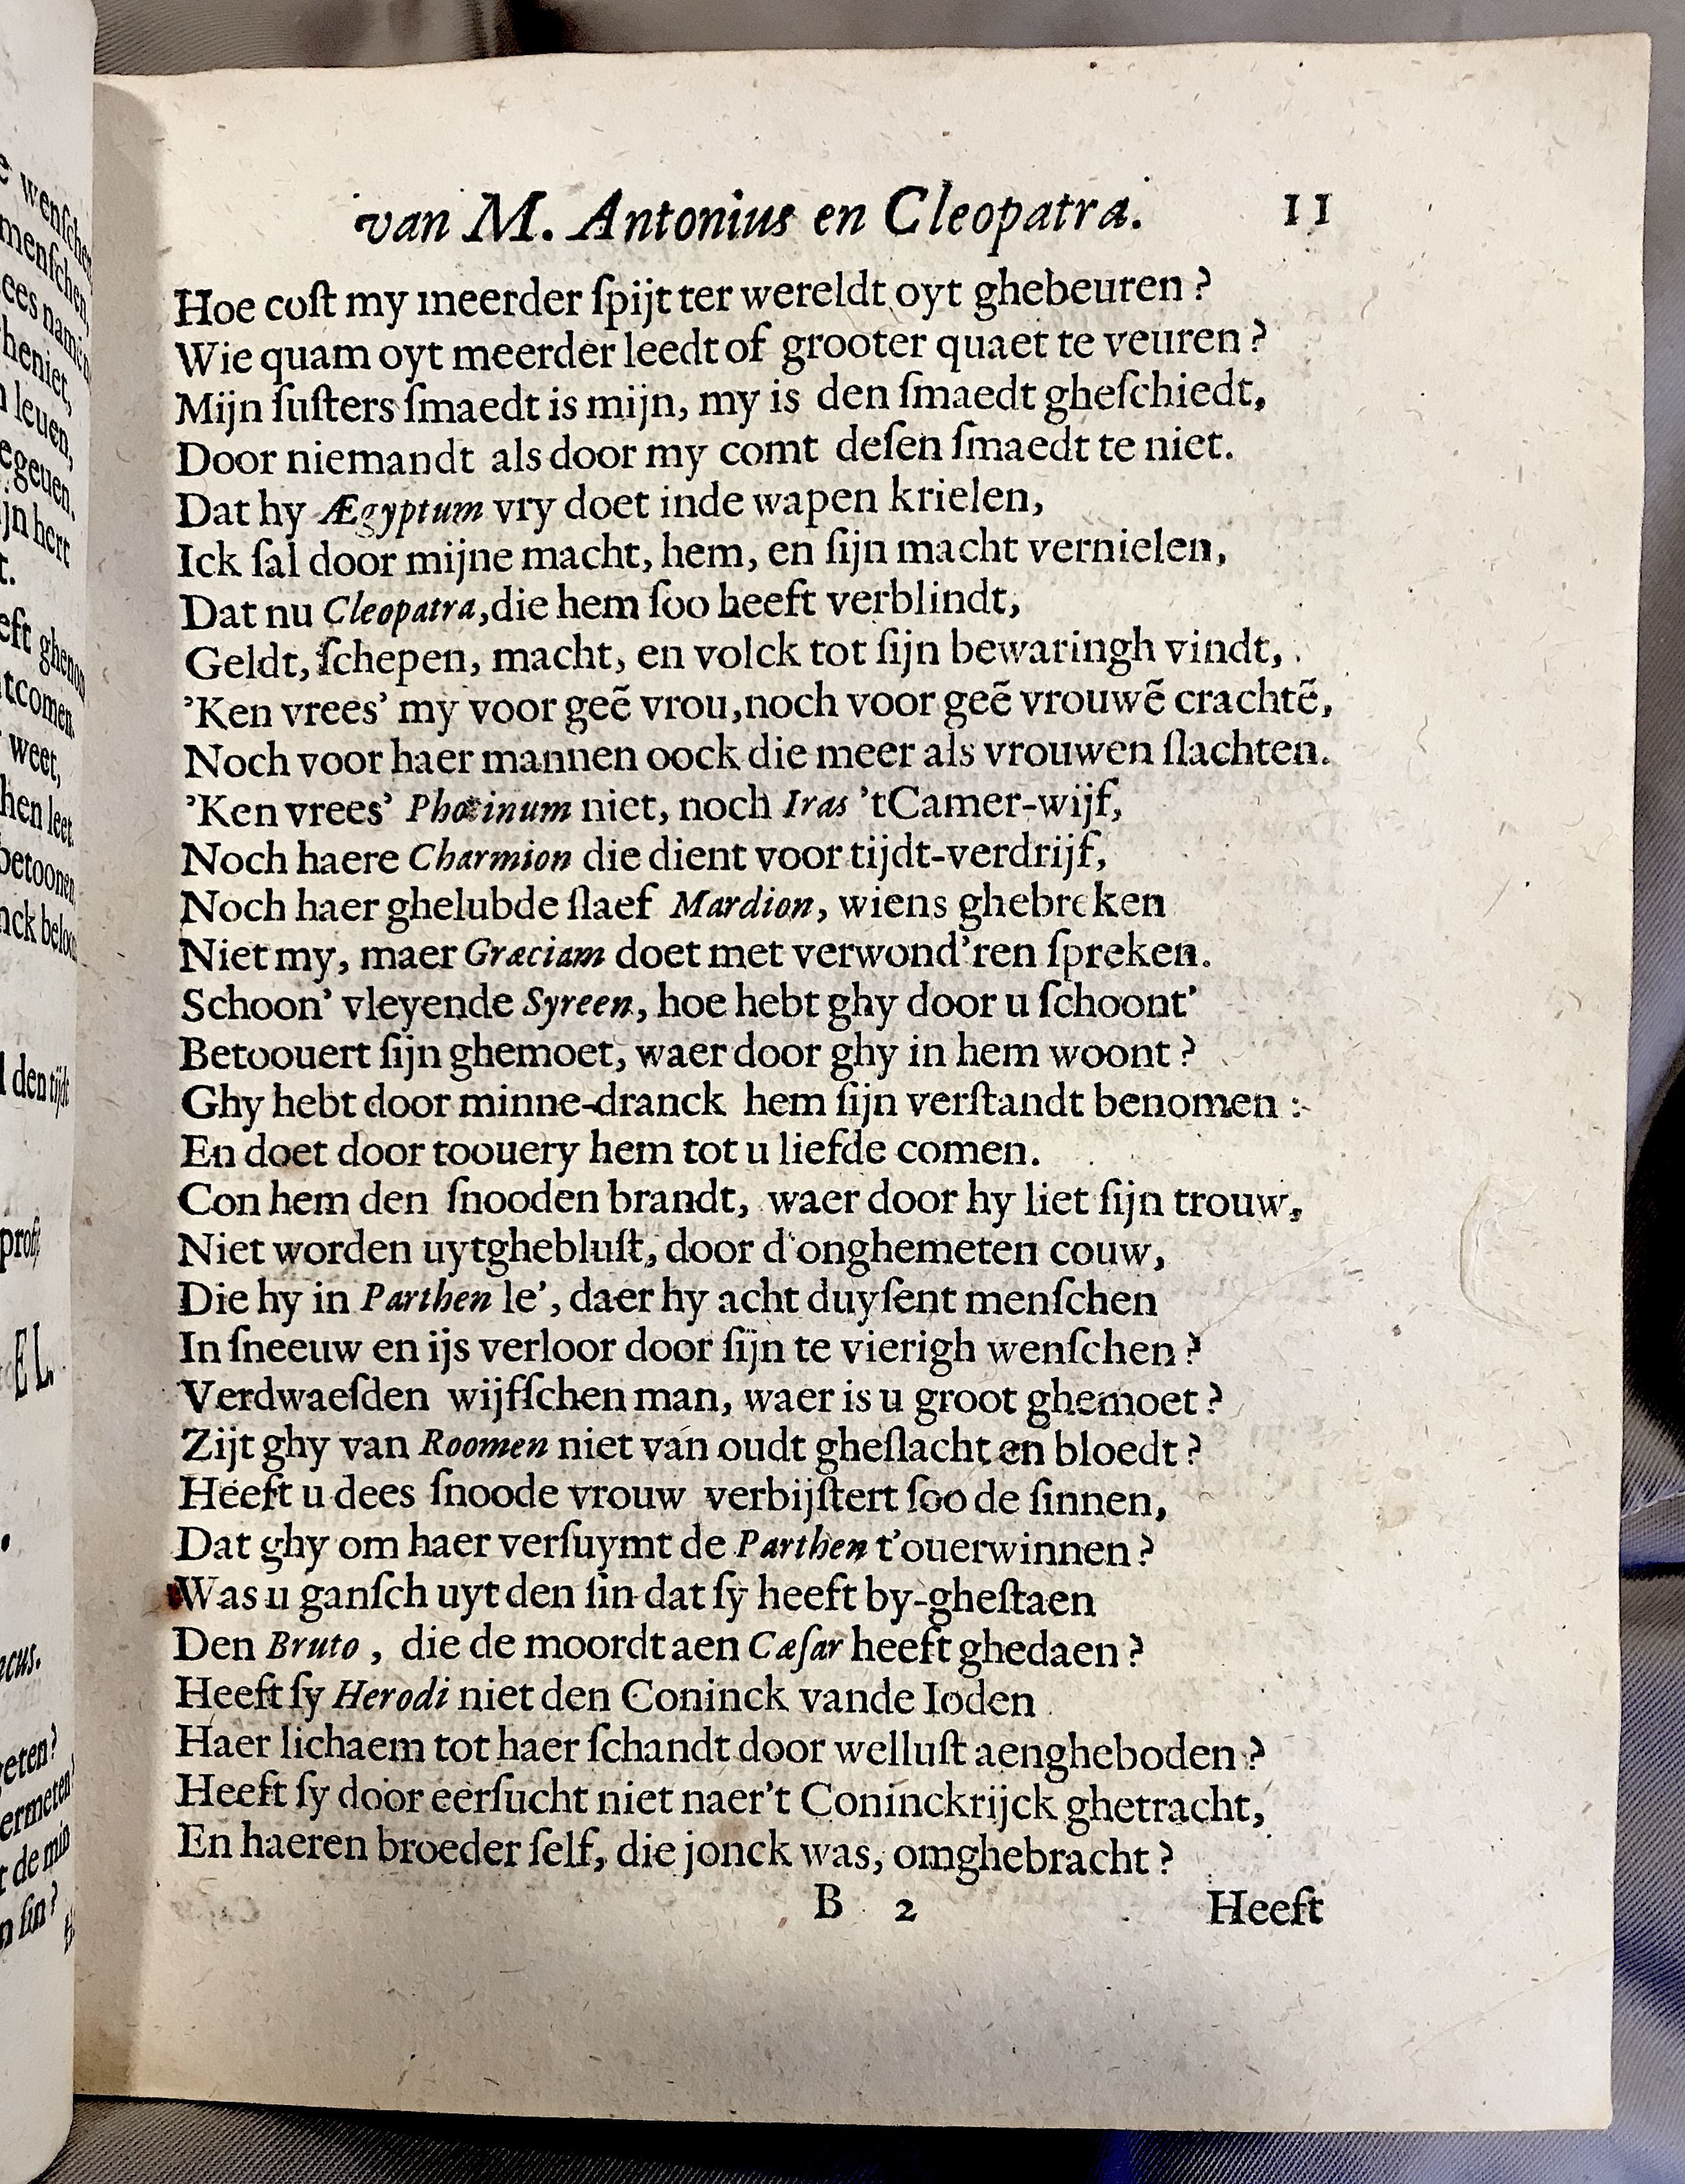 van M. Antonius en Cleopatra. 11
Hoe coſt my meerder ſpijt ter wereldt oyt ghebeuren ?
Wie quam oyt meerder leedt of grooter quaet te veuren ?
Mijn ſuſters ſmaedt is mijn, my is den ſmaedt gheſchiedt,
Door niemandt als door my comt deſen ſmaedt te niet.
Dat hy Ægyptum vry doet inde wapen krielen,
Ick ſal door mijne macht, hem, en ſijn macht vernielen,
Dat nu Cleopatra,die hem ſoo heeft verblindt,
Geldt, ſchepen, macht, en volck tot ſijn bewaringh vindt,
’Ken vrees’ my voor geẽ vrou,noch voor geẽ vrouwẽ crachtẽ,
Noch voor haer mannen oock die meer als vrouwen ſlachten.
’Ken vrees’ Photinum niet, noch Iras ’tCamer-wijf,
Noch haere Charmion die dient voor tijdt-verdrijf,
Noch haer ghelubde ſlaef Mardion, wiens ghebreken
Niet my, maer Græciam doet met verwond’ren ſpreken.
Schoon’ vleyende Syreen, hoe hebt ghy door u ſchoont’
Betoouert ſijn ghemoet, waer door ghy in hem woont ?
Ghy hebt door minne-dranck hem ſijn verſtandt benomen :
En doet door toouery hem tot u liefde comen.
Con hem den ſnooden brandt, waer door hy liet ſijn trouw,
Niet worden uytghebluſt, door d’onghemeten couw,
Die hy in Parthen le’, daer hy acht duyſent menſchen
In ſneeuw en ijs verloor door ſijn te vierigh wenſchen ?
Verdwaeſden wijfſchen man, waer is u groot ghemoet ?
Zijt ghy van Roomen niet van oudt gheſlacht en bloedt ?
Heeft u dees ſnoode vrouw verbijſtert ſoo de ſinnen,
Dat ghy om haer verſuymt de Parthen t’ouerwinnen ?
Was u ganſch uyt den ſin dat ſy heeft by-gheſtaen
Den Bruto , die de moordt aen Cæſar heeft ghedaen ?
Heeft ſy Herodi niet den Coninck vande Ioden
Haer lichaem tot haer ſchandt door welluſt aengheboden ?
Heeft ſy door eerſucht niet naer’t Coninckrijck ghetracht,
En haeren broeder ſelf, die jonck was, omghebracht ?
B 2 Heeft